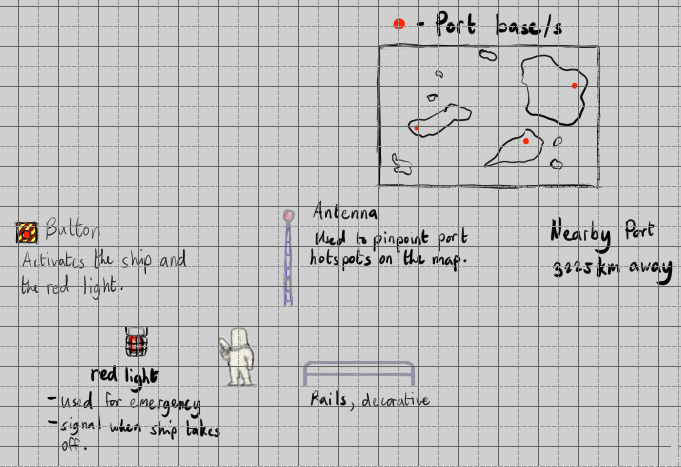 - Port base/s
Button
Activates the ship and
the red light.
Antenna
Used to pinpoint port
hotspots on the map.
Nearby Port
3225 km away
red light
- used for emergency
- signal when ship takes
off.
Rails, decorative